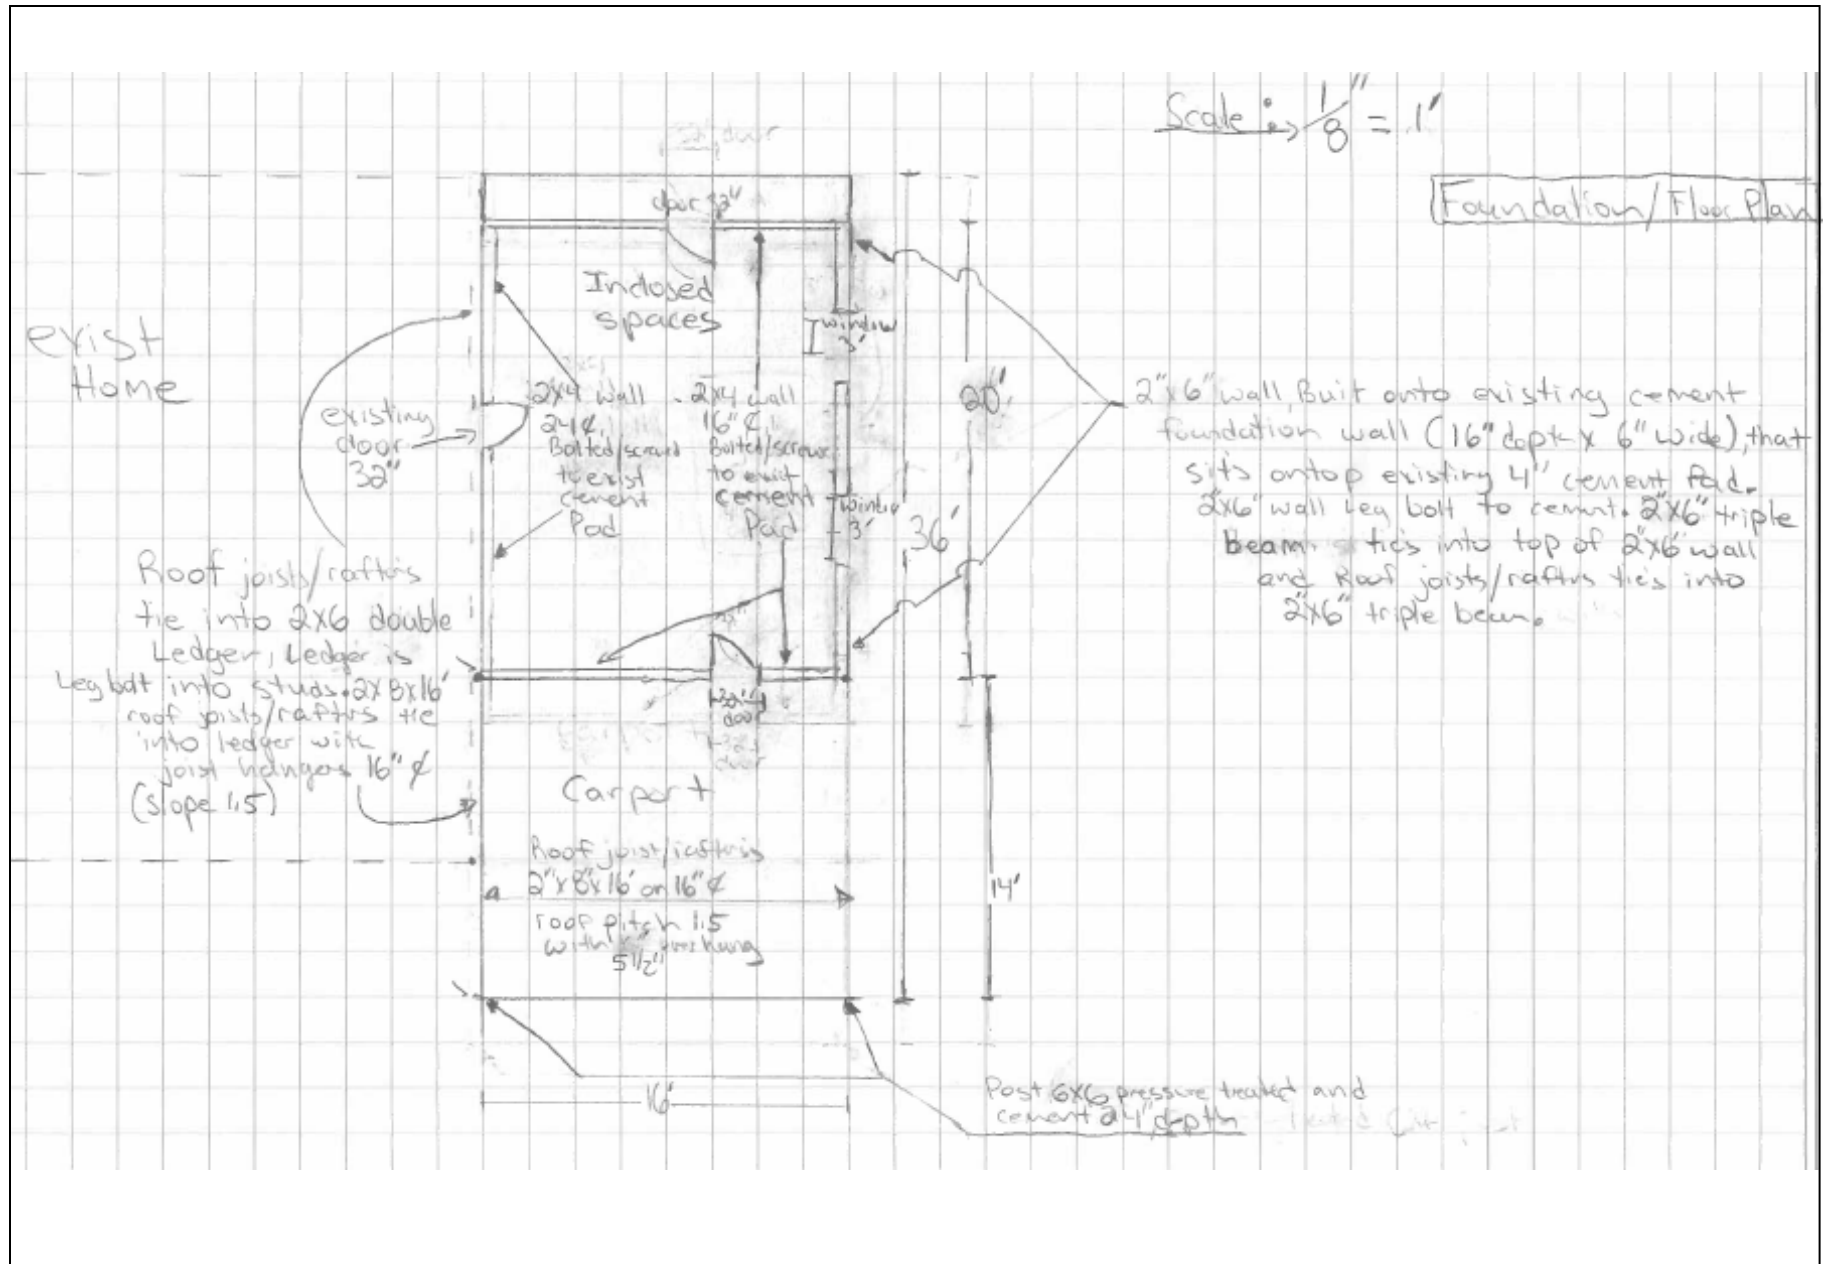 Scale: 1/8" = 1'
Foundation/Floor Plan
door 32"
Inclosed
spaces
window
3'
exist
Home
existing
door
32"
2x4 wall
24 ¢,
Bolted/screwd
to exist
cement
Pad
2x4 wall
16" ¢,
Bolted/screw
to exist
cement
Pad
window
3'
20'
36'
2"x6" wall, Built onto existing cement
foundation wall (16" depth x 6" wide), that
sits ontop existing 4" cement Pad.
2"x6" wall Leg bolt to cement. 2"x6" triple
beam ties into top of 2"x6" wall
and Roof joists/raftrs ties into
2"x6" triple beam.
Roof joists/raftrs
tie into 2x6 double
Ledger, Ledger is
Leg bolt into studs. 2x8x16'
roof joists/raftrs tie
into ledger with
joist hangers 16" ¢
(slope 1.5)
32"
door
Carport
Roof joist/raftris
2"x8"x16' on 16" ¢
roof pitch 1.5
with overhang
5 1/2"
14'
16'
Post 6x6 pressure treated and
cement 24" depth